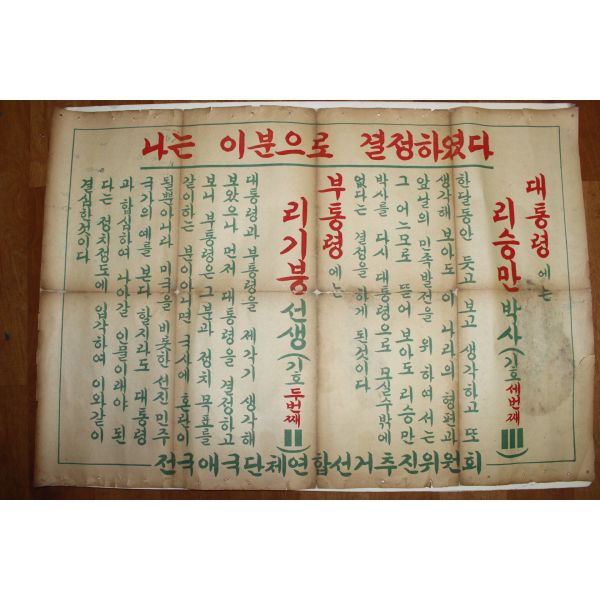 나는 이분으로 결정하였다
대통령에는
리승만 박사 (기호 세번째 III)
한달동안 듯고 보고 생각하고 또
생각해 보아도 이 나라의 형편과
앞날의 민족발전을 위하여서는
그 어느모로 뜯어 보아도 리승만
박사를 다시 대통령으로 모실수밖에
없다는 결정을 하게 된것이다
부통령에는
리기붕 선생 (기호 두번째 II)
대통령과 부통령을 제각기 생각해
보았으나 먼저 대통령을 결정하고
보니 부통령은 그분과 정치목표를
같이하는 분이아니면 국사에 혼란이
될뿐아니라 미국을 비롯한 선진민주
국가의 예를 본다 할지라도 대통령
과 합심하여 나아갈 인물이래야 된
다는 정치정도에 입각하여 이와같이
결심한것이다
전국애국단체연합선거추진위원회